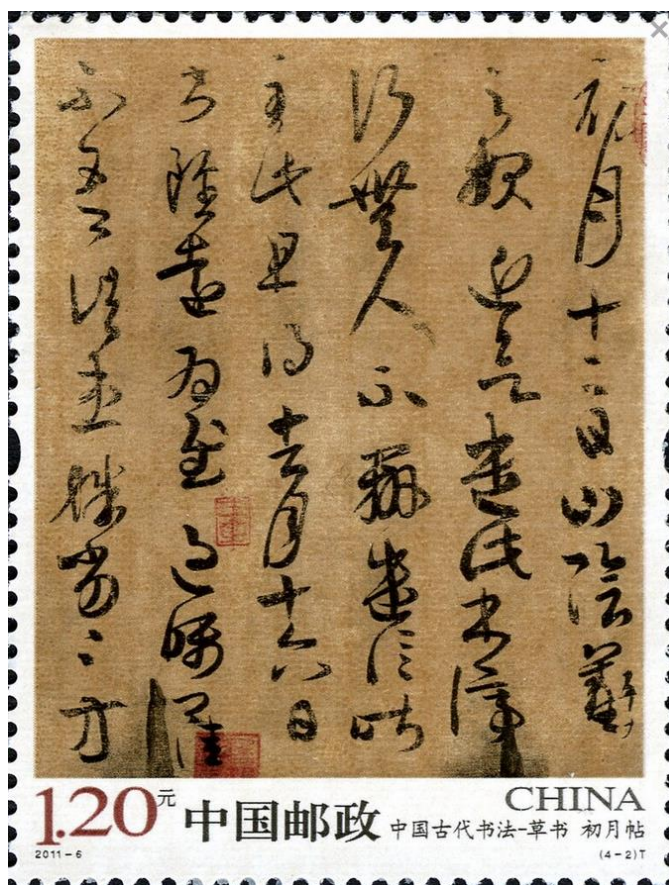 初月十二日山陰羲
之報近欲遣此書停
行無人不辦遣信昨
至此且得去月十六日
書雖遠為慰過囑卿佳
不吾諸患殊劣〻方
1.20元
中国邮政
CHINA
中国古代书法-草书 初月帖
2011-6
(4-2)T